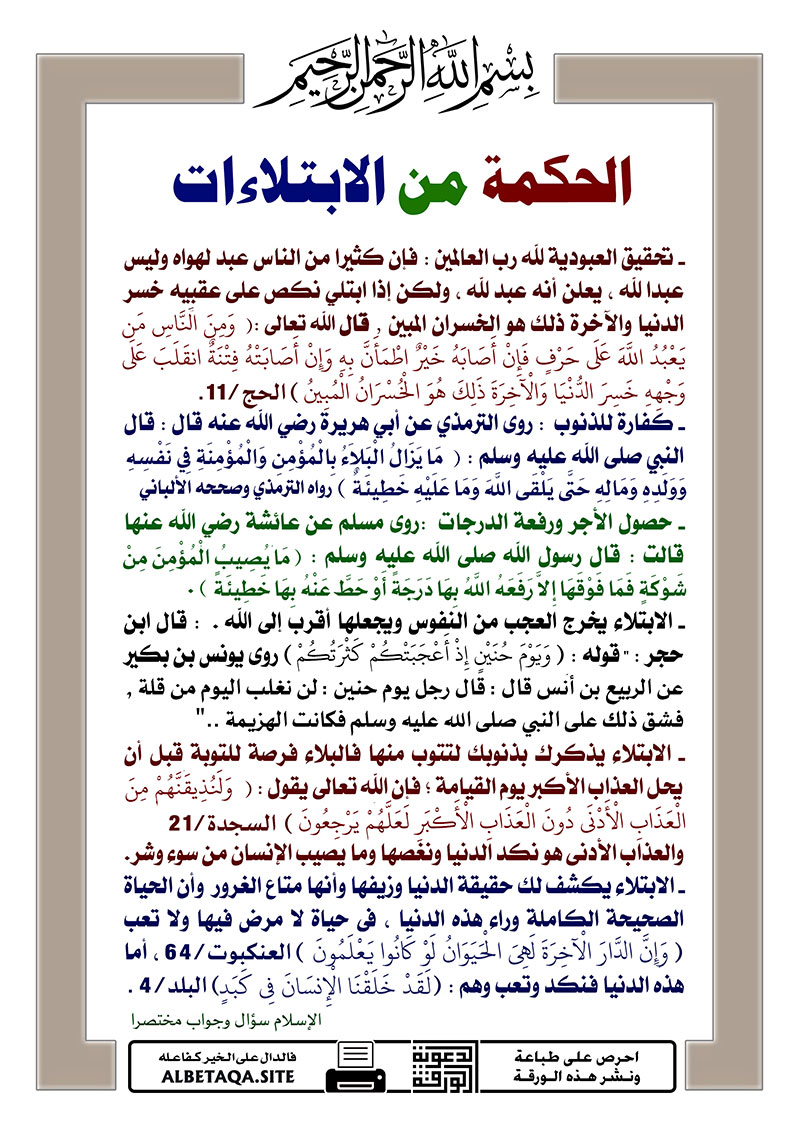 بسم الله الرحمن الرحيم
الحكمة من الابتلاءات
ـ تحقيق العبودية لله رب العالمين : فإن كثيرا من الناس عبد لهواه وليس
عبدا لله ، يعلن أنه عبد لله ، ولكن إذا ابتلي نكص على عقبيه خسر
الدنيا والآخرة ذلك هو الخسران المبين , قال الله تعالى :( وَمِنَ النَّاسِ مَن
يَعْبُدُ اللَّهَ عَلَى حَرْفٍ فَإِنْ أَصَابَهُ خَيْرٌ اطْمَأَنَّ بِهِ وَإِنْ أَصَابَتْهُ فِتْنَةٌ انقَلَبَ عَلَى
وَجْهِهِ خَسِرَ الدُّنْيَا وَالْآخِرَةَ ذَلِكَ هُوَ الْخُسْرَانُ الْمُبِينُ ) الحج /11.
ـ كفارة للذنوب : روى الترمذي عن أبي هريرة رضي الله عنه قال : قال
النبي صلى الله عليه وسلم : ( مَا يَزَالُ الْبَلَاءُ بِالْمُؤْمِنِ وَالْمُؤْمِنَةِ فِي نَفْسِهِ
وَوَلَدِهِ وَمَالِهِ حَتَّى يَلْقَى اللَّهَ وَمَا عَلَيْهِ خَطِيئَةٌ ) رواه الترمذي وصححه الألباني
ـ حصول الأجر ورفعة الدرجات :روى مسلم عن عائشة رضي الله عنها
قالت : قال رسول الله صلى الله عليه وسلم : ( مَا يُصِيبُ الْمُؤْمِنَ مِنْ
شَوْكَةٍ فَمَا فَوْقَهَا إِلاَّ رَفَعَهُ اللَّهُ بِهَا دَرَجَةً أَوْ حَطَّ عَنْهُ بِهَا خَطِيئَةً ) .
ـ الابتلاء يخرج العجب من النفوس ويجعلها أقرب إلى الله . : قال ابن
حجر : " قوله : ( وَيَوْمَ حُنَيْنٍ إِذْ أَعْجَبَتْكُمْ كَثْرَتُكُمْ ) روى يونس بن بكير
عن الربيع بن أنس قال : قال رجل يوم حنين : لن نغلب اليوم من قلة ,
فشق ذلك على النبي صلى الله عليه وسلم فكانت الهزيمة .."
ـ الابتلاء يذكرك بذنوبك لتتوب منها فالبلاء فرصة للتوبة قبل أن
يحل العذاب الأكبر يوم القيامة ؛ فإن الله تعالى يقول :( وَلَنُذِيقَنَّهُمْ مِنَ
الْعَذَابِ الْأَدْنَى دُونَ الْعَذَابِ الْأَكْبَرِ لَعَلَّهُمْ يَرْجِعُونَ ) السجدة /21
والعذاب الأدنى هو نكد الدنيا ونغصها وما يصيب الإنسان من سوء وشر.
ـ الابتلاء يكشف لك حقيقة الدنيا وزيفها وأنها متاع الغرور وأن الحياة
الصحيحة الكاملة وراء هذه الدنيا ، فى حياة لا مرض فيها ولا تعب
( وَإِنَّ الدَّارَ الْآخِرَةَ لَهِىَ الْحَيَوَانُ لَوْ كَانُوا يَعْلَمُونَ ) العنكبوت /64 ، أما
هذه الدنيا فنكد وتعب وهم : (لَقَدْ خَلَقْنَا الْإِنْسَانَ فِى كَبَدٍ) البلد /4 .
الإسلام سؤال وجواب مختصرا
احرص على طباعة
ونشر هذه الورقة
الورقة
الدعوية
فالدال على الخير كفاعله
ALBETAQA.SITE